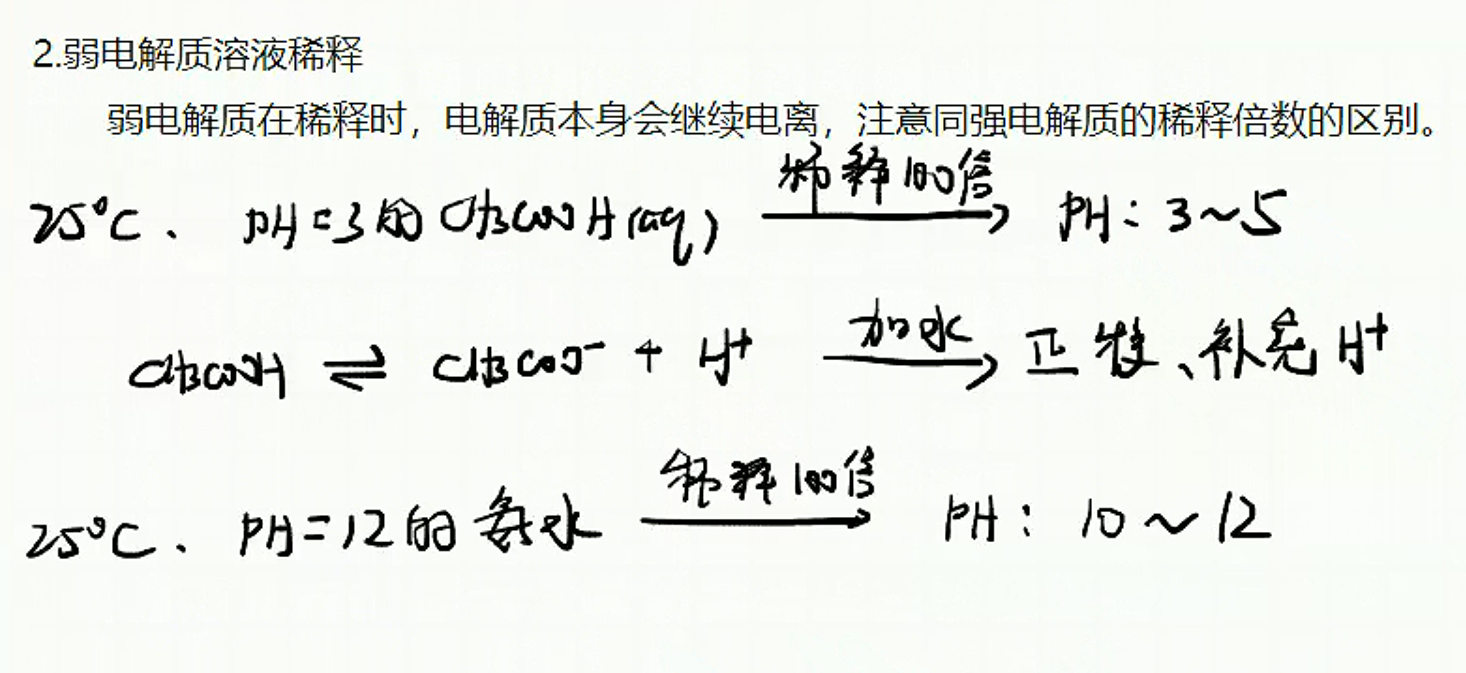 2.弱电解质溶液稀释
弱电解质在稀释时，电解质本身会继续电离，注意同强电解质的稀释倍数的区别。
25°C、pH=3的CH3COOH(aq) 稀释100倍→ pH：3~5
CH3COOH ⇌ CH3COO⁻ + H⁺ 加水→ 正移、补充H⁺
25°C、PH=12的氨水 稀释100倍→ PH：10~12